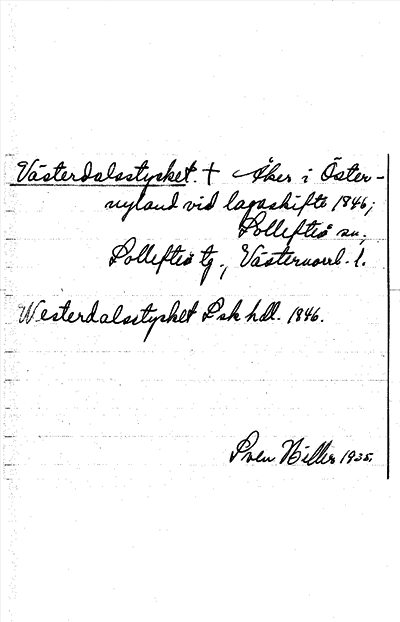 Västerdalsstycket. † Åker i Öster-
nyland vid lagaskifte 1846;
Sollefteå sn;
Sollefteå tg, Västernorrl. l.
Westerdalsstycket Lsk hdl. 1846.
Sven Hiller 1935.